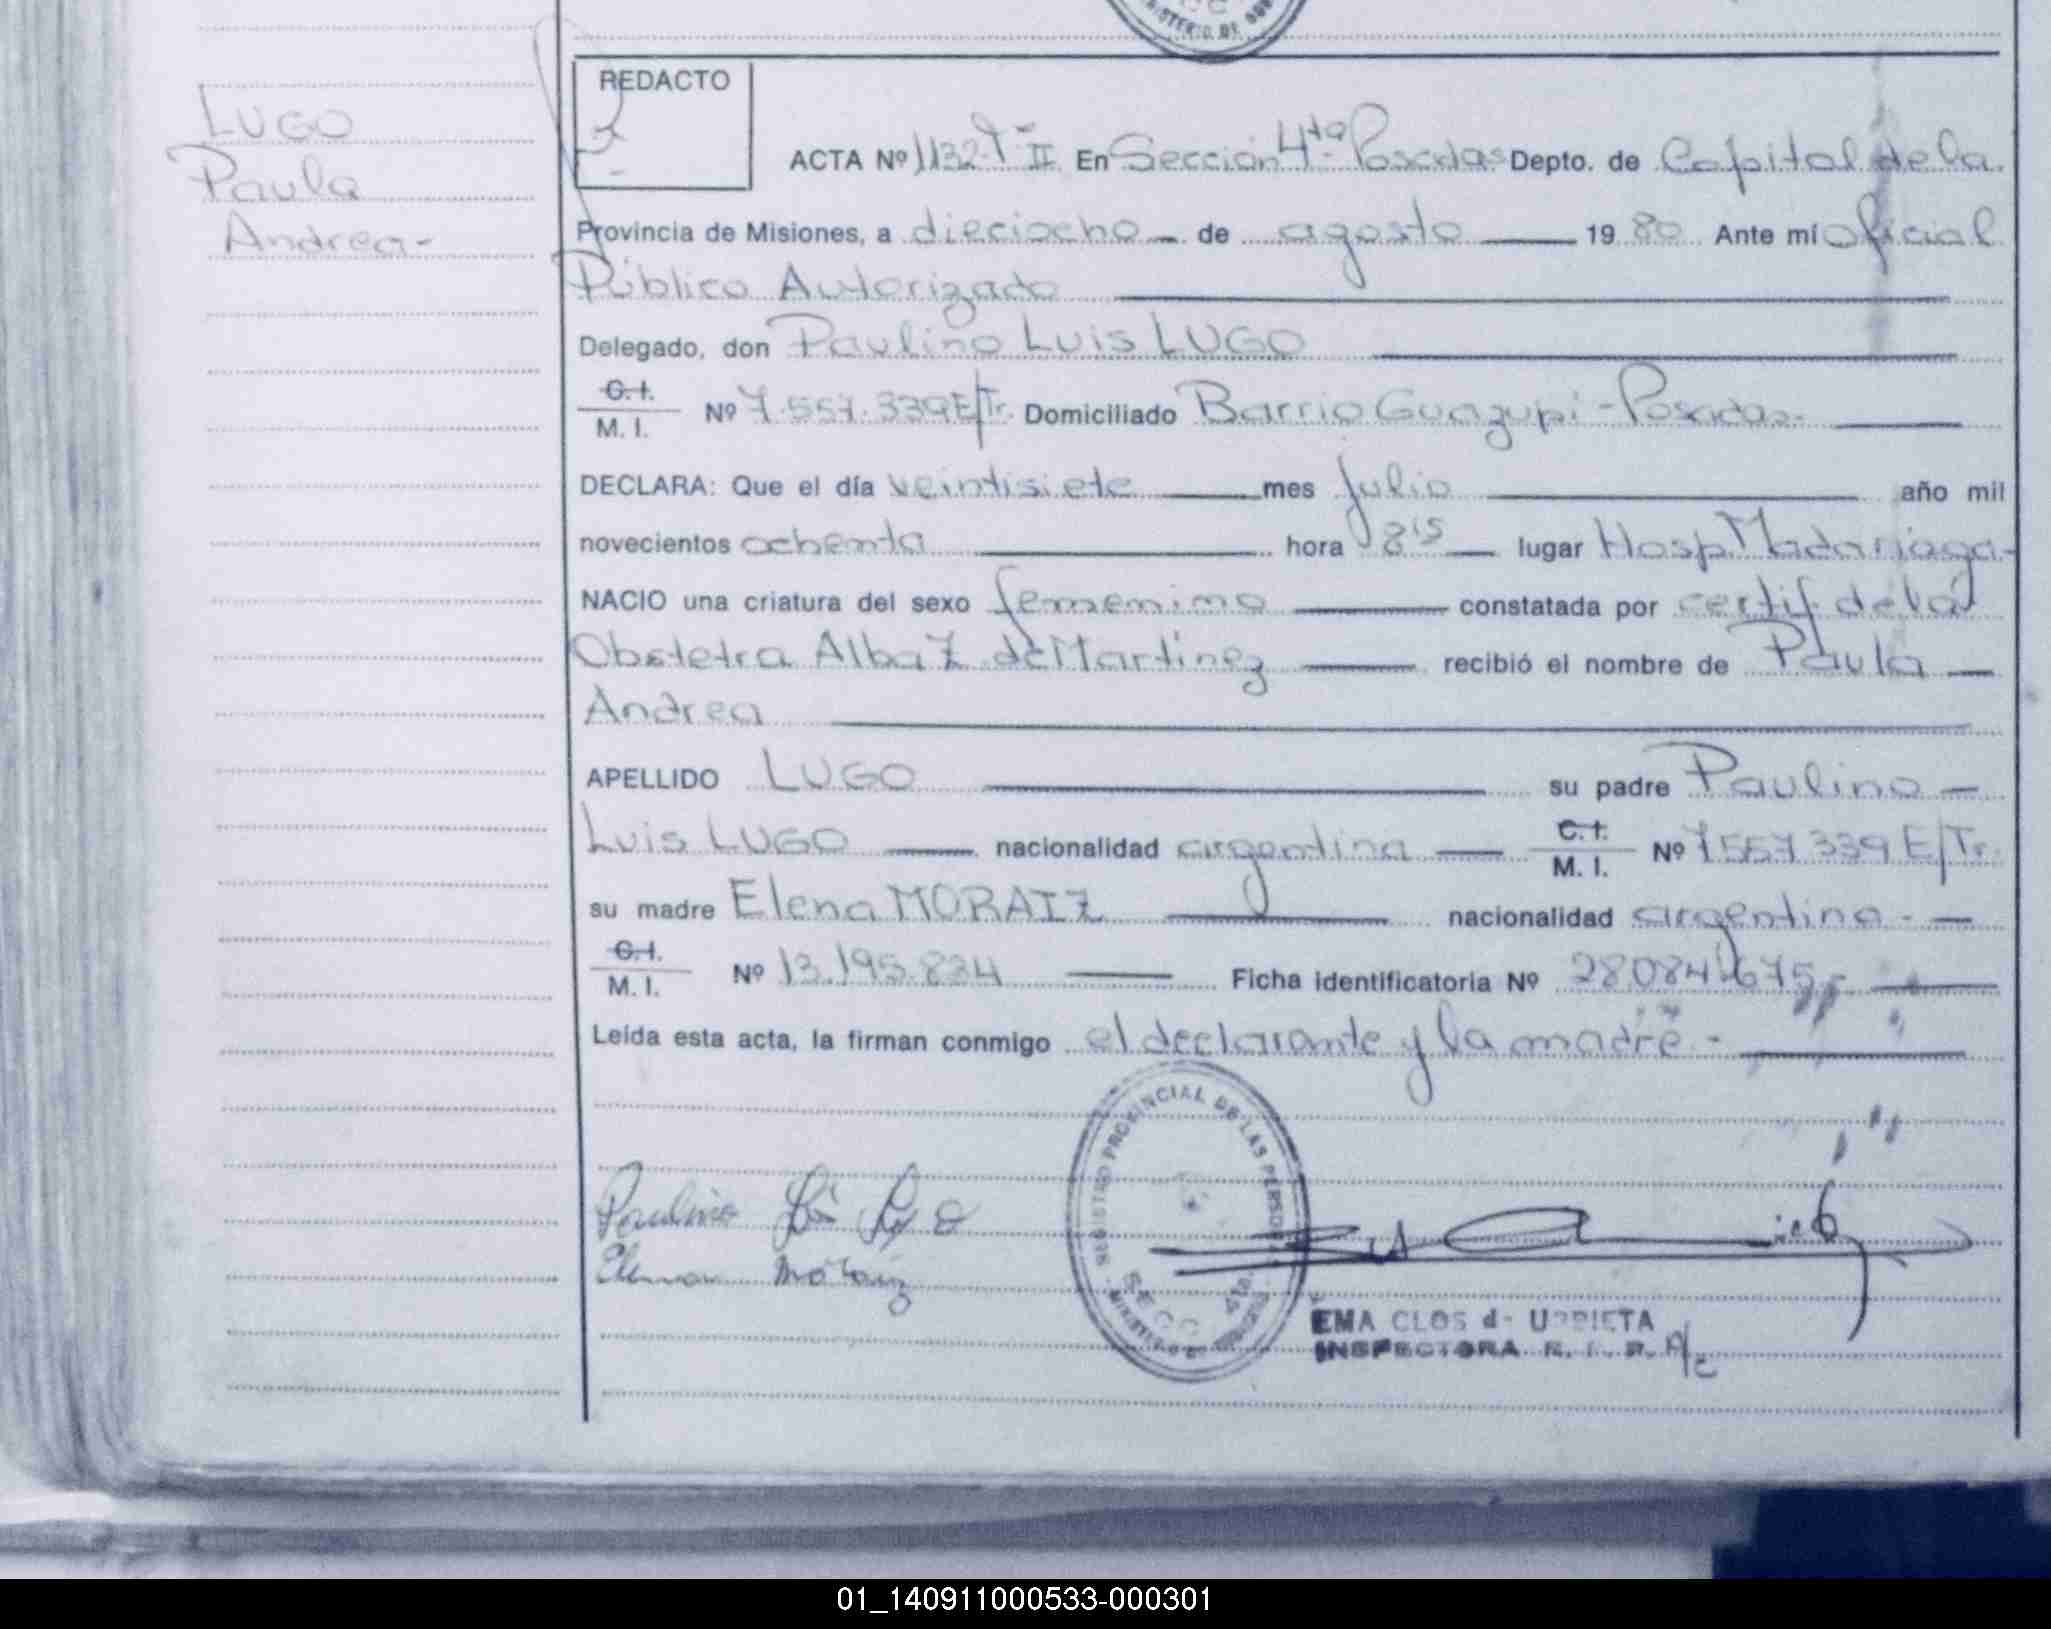 MINISTERIO DE GOB
LUGO
Paula
Andrea-
REDACTO
ACTA Nº 1132 T II En Sección 4ta Posadas Depto. de Capital de la
Provincia de Misiones, a dieciocho de agosto 19 80 Ante mí oficial
Público Autorizado
Delegado, don Paulino Luis LUGO
C.I.
M. I. Nº 7.557.339 E/Tr. Domiciliado Barrio Guazupi - Posadas-
DECLARA: Que el día veintisiete mes julio año mil
novecientos ochenta hora 8 15 lugar Hosp Madariaga-
NACIO una criatura del sexo femenino constatada por certif de la
Obstetra Alba Z de Martinez recibió el nombre de Paula
Andrea
APELLIDO LUGO su padre Paulino
Luis LUGO nacionalidad argentina C.I. M. I. Nº 7557339 E/Tr.
su madre Elena MORAIZ nacionalidad argentina-
C.I.
M. I. Nº 13.195.834 Ficha identificatoria Nº 28084675,-
Leída esta acta, la firman conmigo el declarante y la madre -
REGISTRO PROVINCIAL DE LAS PERSONAS
SECC 4ta.
MINISTERIO DE GOBIERNO
Paulino Luis Lugo
Elena Moraiz
EMA CLOS de URRIETA
INSPECTORA R. P. P. A/c
01_140911000533-000301